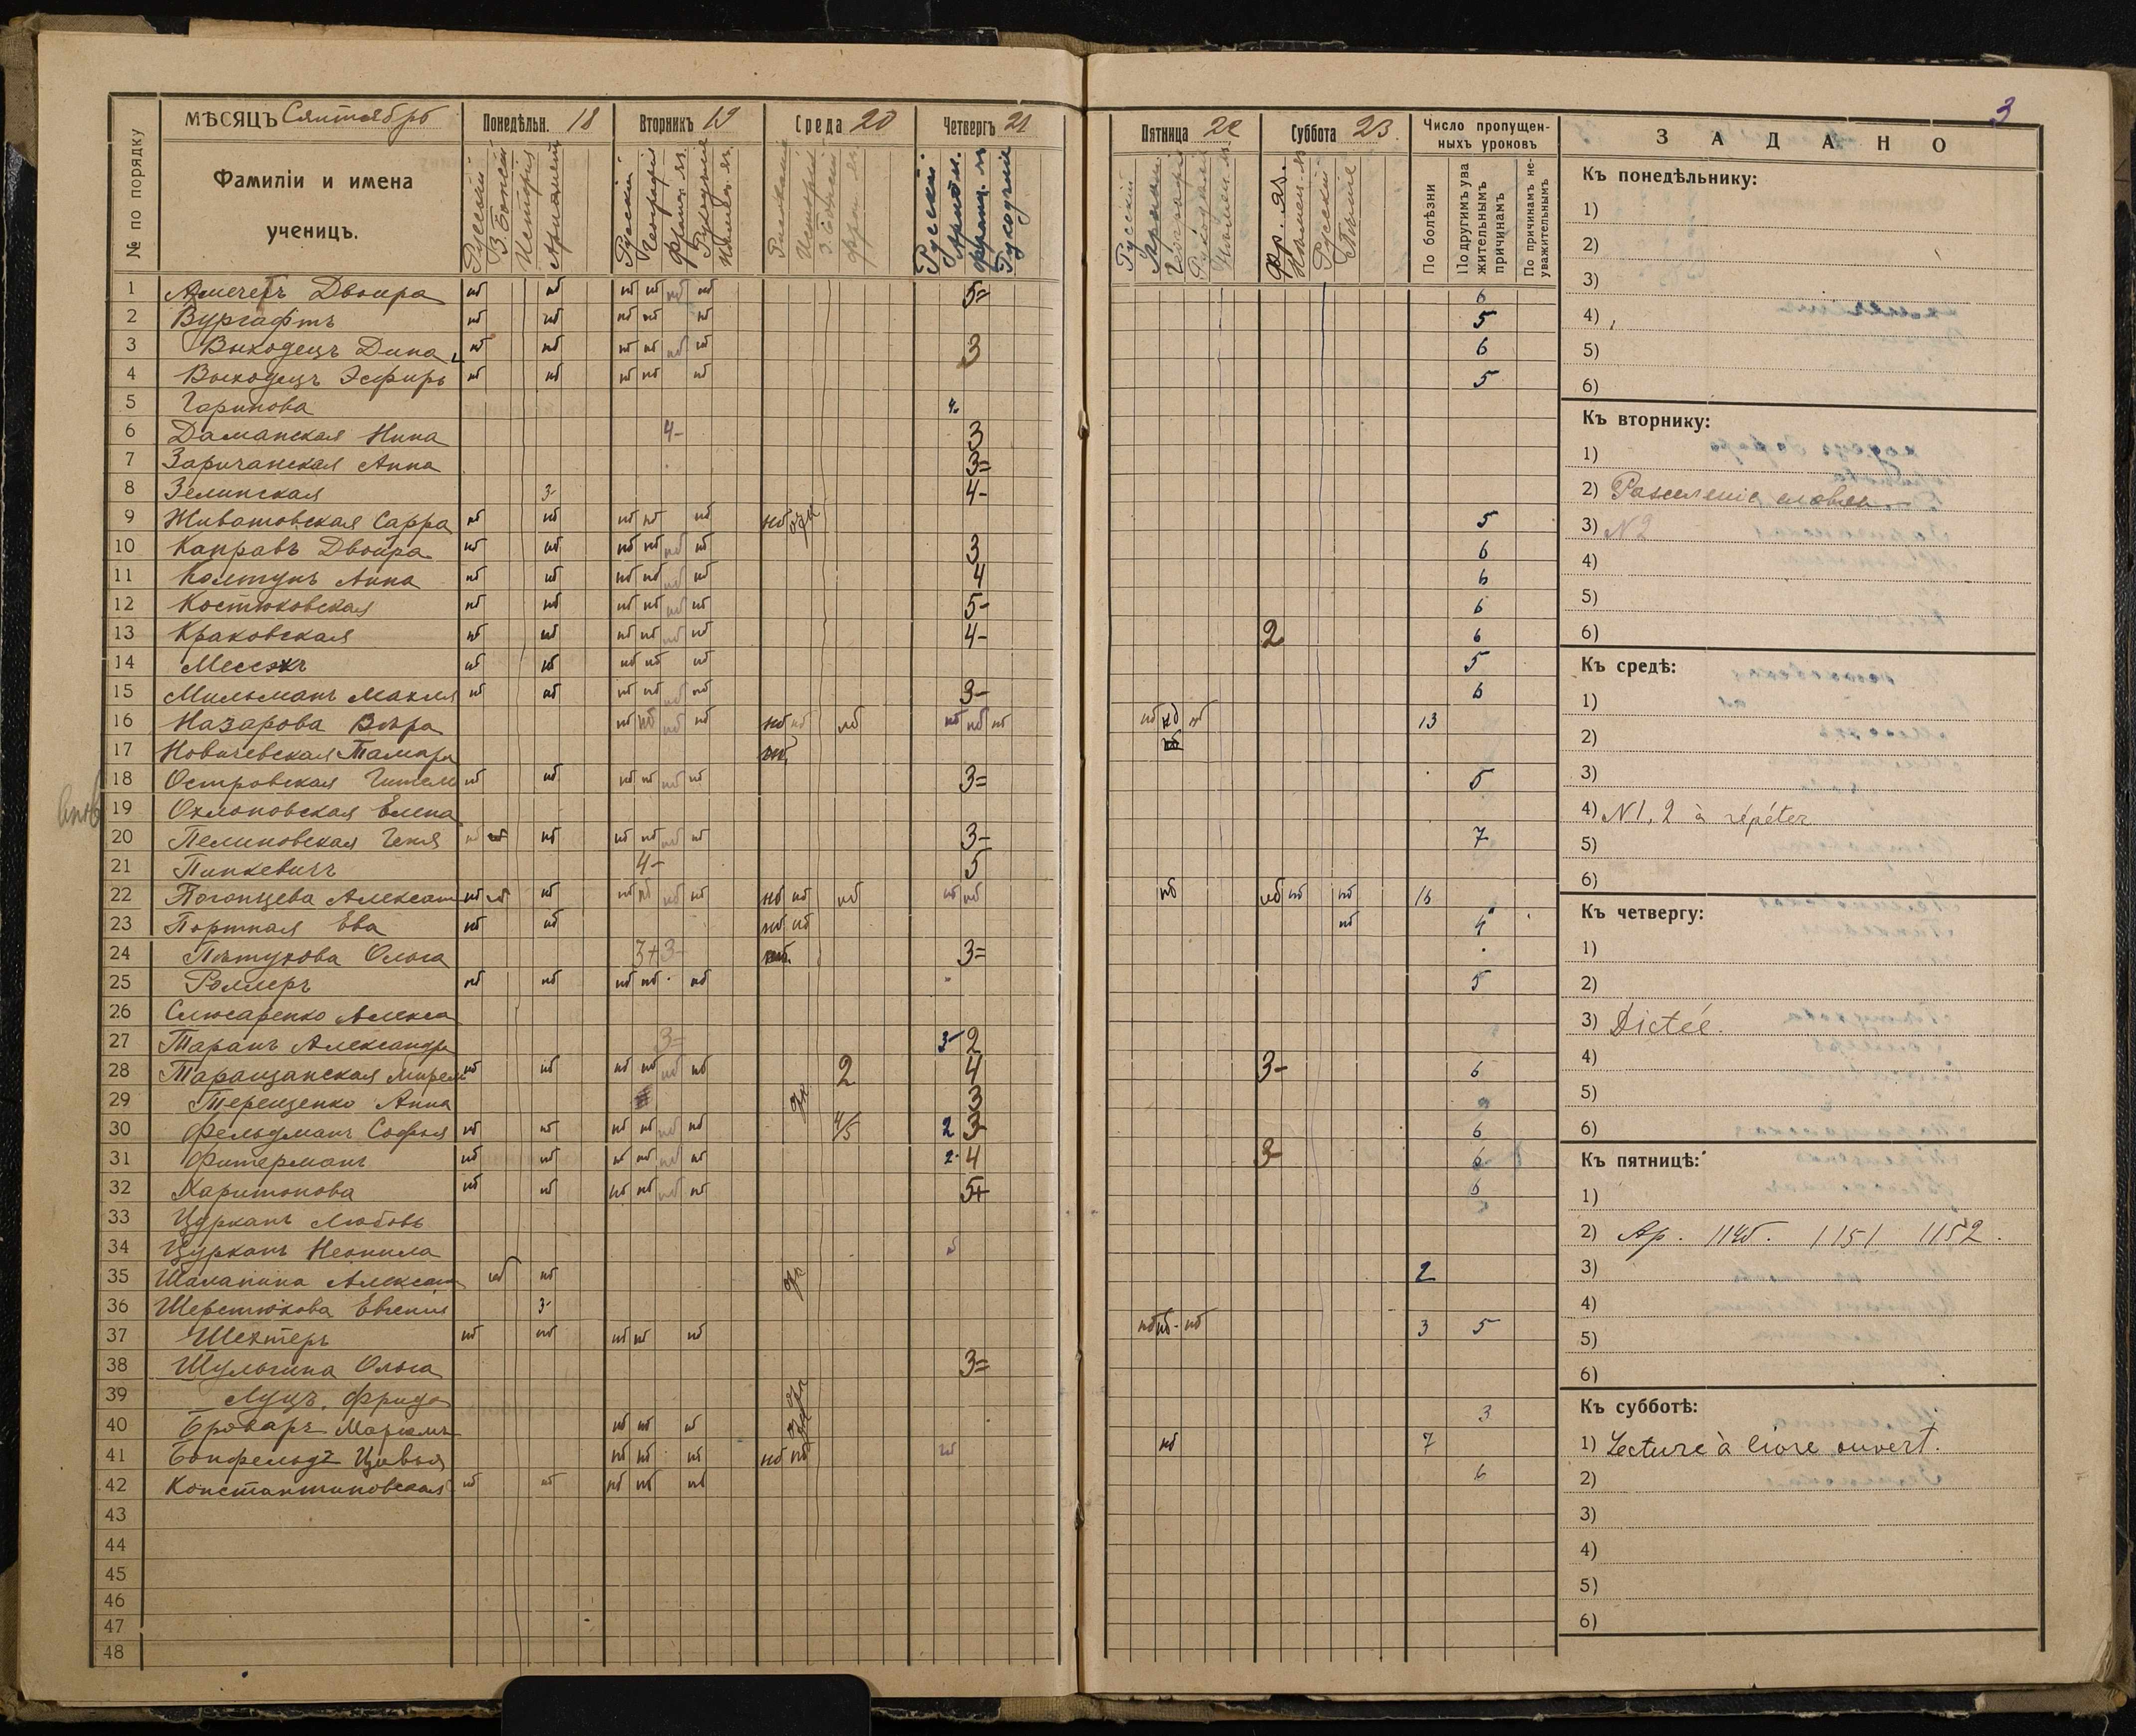 3
МѢСЯЦЪ Сентябрь
Понедѣльн. 18
Вторникъ 19
Среда 20
Четвергъ 21
Пятница 22
Суббота 23
Число пропущен-
ныхъ уроковъ
ЗАДАНО
№ по порядку
Фамиліи и имена
ученицъ.
Русскій
З. Божій
Исторія
Русскій
Географія
Франц. яз.
Рукодѣліе
Нѣмец. яз.
Русскій
Франц. яз
Рукодѣліе
Русскій
Фр. яз.
Нѣмец. яз
Русскій
Пѣніе
По болѣзни
По другимъ ува
жительнымъ
причинамъ
По причинамъ не-
уважительнымъ
1 Двойра нб нб нб нб нб нб 5= 6
2 Вургафтъ нб нб нб нб 5
3 Выходецъ Дина нб нб нб нб нб нб 3 6
4 Выходецъ Эсфирь нб нб нб нб нб 5
5 Горинова 4-
6 Даманская Нина 4- 3
7 Заричанская Анна 3=
8 Зелинская 3- 4-
9 Животовская Сарра нб нб нб нб нб нб 5
10 Каправъ Двойра нб нб нб нб нб нб 3 6
11 Колтунъ Анна нб нб нб нб нб нб 4 6
12 Костюковская нб нб нб нб нб нб 5- 6
13 Краковская нб нб нб нб нб нб 4- 2 6
14 нб нб нб нб нб 5
15 Мильманъ Махля нб нб нб нб нб нб 3- 6
16 Назарова Вѣра нб нб нб нб нб нб нб нб нб нб нб нб нб 13
17 Новичевская Тамара
18 Островская Гитель нб нб нб нб нб нб 3= 5
19 Охлоповская Елена
20 Пелиновская Геня нб нб нб нб нб нб нб 3- 7
21 Пинкевичъ 4- 5
22 Поганцева Александ нб нб нб нб нб нб нб нб нб нб нб нб нб нб нб нб 16
23 Портная Ева нб нб нб нб нб 4
24 Пѣтухова Ольга 3+ 3- 3=
25 Роллеръ нб нб нб нб нб 5
26 Слюсаренко Алекса
27 Таранъ Александра 3= 3- 2
28 Таращанская Мирел нб нб нб нб нб нб 2 4 3- 6
29 Терещенко Анна 3
30 Фельдманъ Софья нб нб нб нб нб нб 4/5 2 3- 6
31 Фитерманъ нб нб нб нб нб нб 2- 4 3- 6
32 Харитонова нб нб нб нб нб нб 5+ 6
33 Цурканъ Любовь
34 Цурканъ Неонила
35 Шаланина Алексан нб нб 2
36 Шерстюкова Евгенія 3-
37 Шехтеръ нб нб нб нб нб нб нб нб 3 5
38 Шульгина Ольга 3=
39 Луцъ Фрида
40 Броваръ Маріямъ нб нб нб 3
41 Бонфельдъ Цивья нб нб нб нб нб нб 7
42 Константиновская нб нб нб нб нб 6
43
44
45
46
47
48
Къ понедѣльнику:
1)
2)
3)
4)
5)
6)
Къ вторнику:
1)
2)
3) N 2
4)
5)
6)
Къ средѣ:
1)
2)
3)
4) N 1, 2 à répéter
5)
6)
Къ четвергу:
1)
2)
3) Dictée.
4)
5)
6)
Къ пятницѣ:
1)
2) Ар. 1145. 1151 1152.
3)
4)
5)
6)
Къ субботѣ:
1) Lecture à livre ouvert.
2)
3)
4)
5)
6)